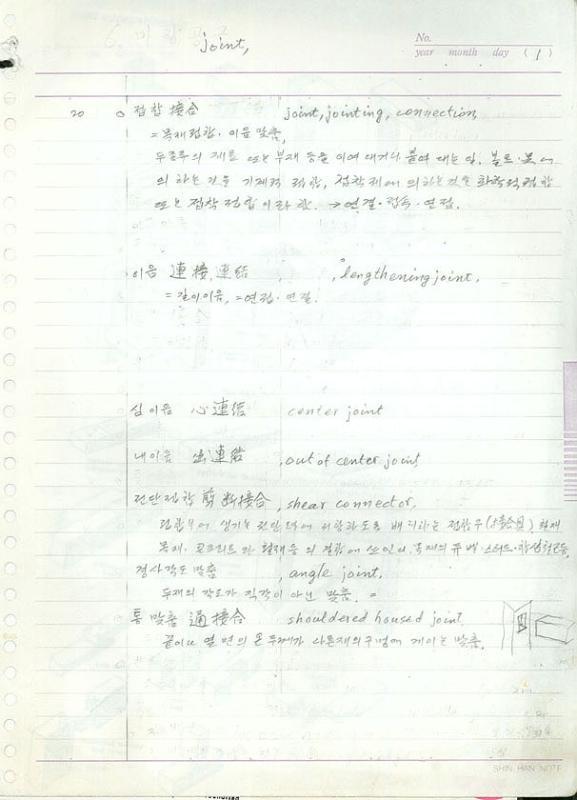 joint,
No.
year month day (1)
20 ○ 접합 接合 joint, jointing, connection
= 목재접합·이음 맞춤,
두 종류의 재료 또는 부재 등을 이어 대거나 붙여 대는 일. 볼트·못에
의하는 것을 기계적 접합, 접착제에 의하는 것을 화학적 접합
또는 접착 접합이라 함. →연결·접속·연접.
이음 連接, 連結 , lengthening joint.
= 길이이음, =연접·연결.
심이음 心連結 center joint
내이음 出連結 , out of center joint
전단접합 剪断接合 , shear connector,
접합부에 생기는 전단력에 배치하는 접합
목재·콘크리트와 의 결합에 쓰인다.
경사각도 맞춤 , angle joint.
두재의 각도가 직각이 아닌 맞춤. =
통맞춤 通接合 shouldered housed joint
끝이나 옆 면의 온 두께가 다른재의 구멍에 끼이는 맞춤.
SHIN HAN NOTE